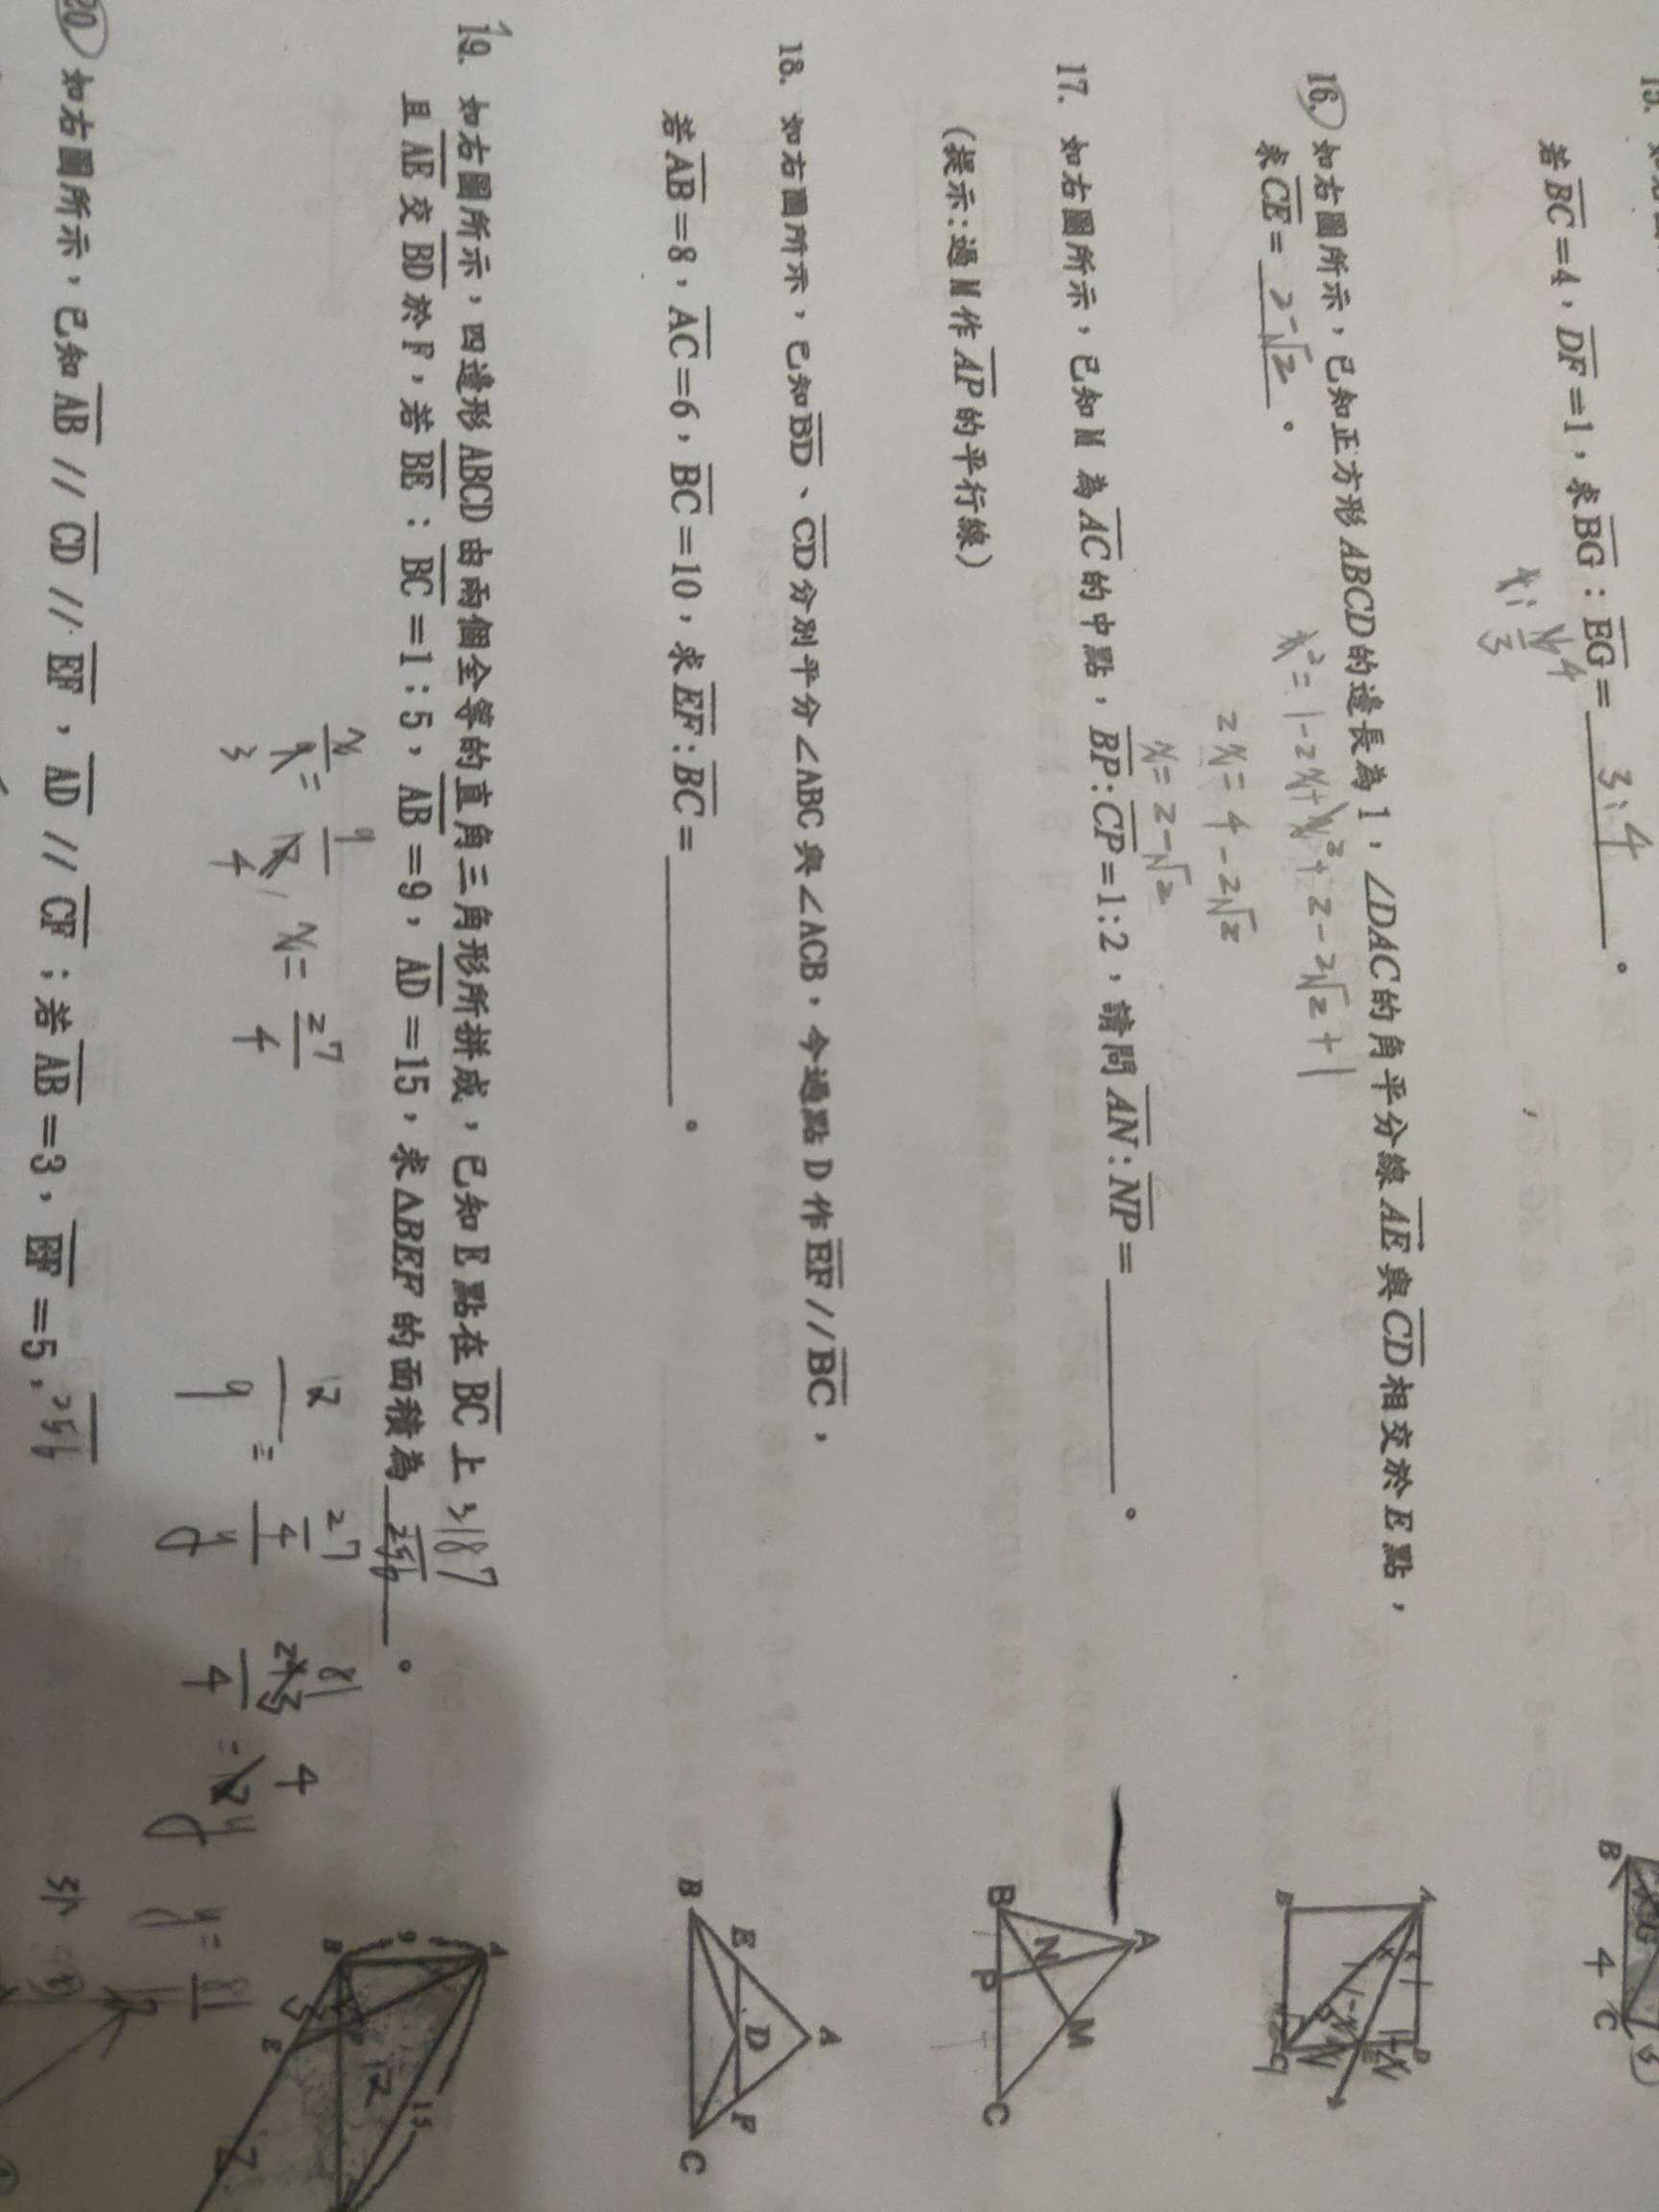 若BC=4,DF=1,求BG:EG= 3:4 。
16. 如右圖所示,已知正方形ABCD的邊長為1,∠DAC的角平分線AE與CD相交於E點,
求CE= 2-√2 。
x²=1-2x+x²+2-2√2+1
2x=4-2√2
x=2-√2
17. 如右圖所示,已知M為AC的中點,BP:CP=1:2,請問AN:NP= 。
(提示:過M作AP的平行線)
18. 如右圖所示,已知BD、CD分別平分∠ABC與∠ACB,今過點D作EF//BC,
若AB=8,AC=6,BC=10,求EF:BC= 。
19. 如右圖所示,四邊形ABCD由兩個全等的直角三角形所拼成,已知E點在BC上
且AE交BD於F,若BE:BC=1:5,AB=9,AD=15,求△BEF的面積為 。
x=27/4
20. 如右圖所示,已知AB//CD//EF,AD//CF;若AB=3,EF=5,
B
4
C
A
D
B
E
A
B
N
P
M
C
A
B
E
D
F
C
A
9
B
15
E
F
12